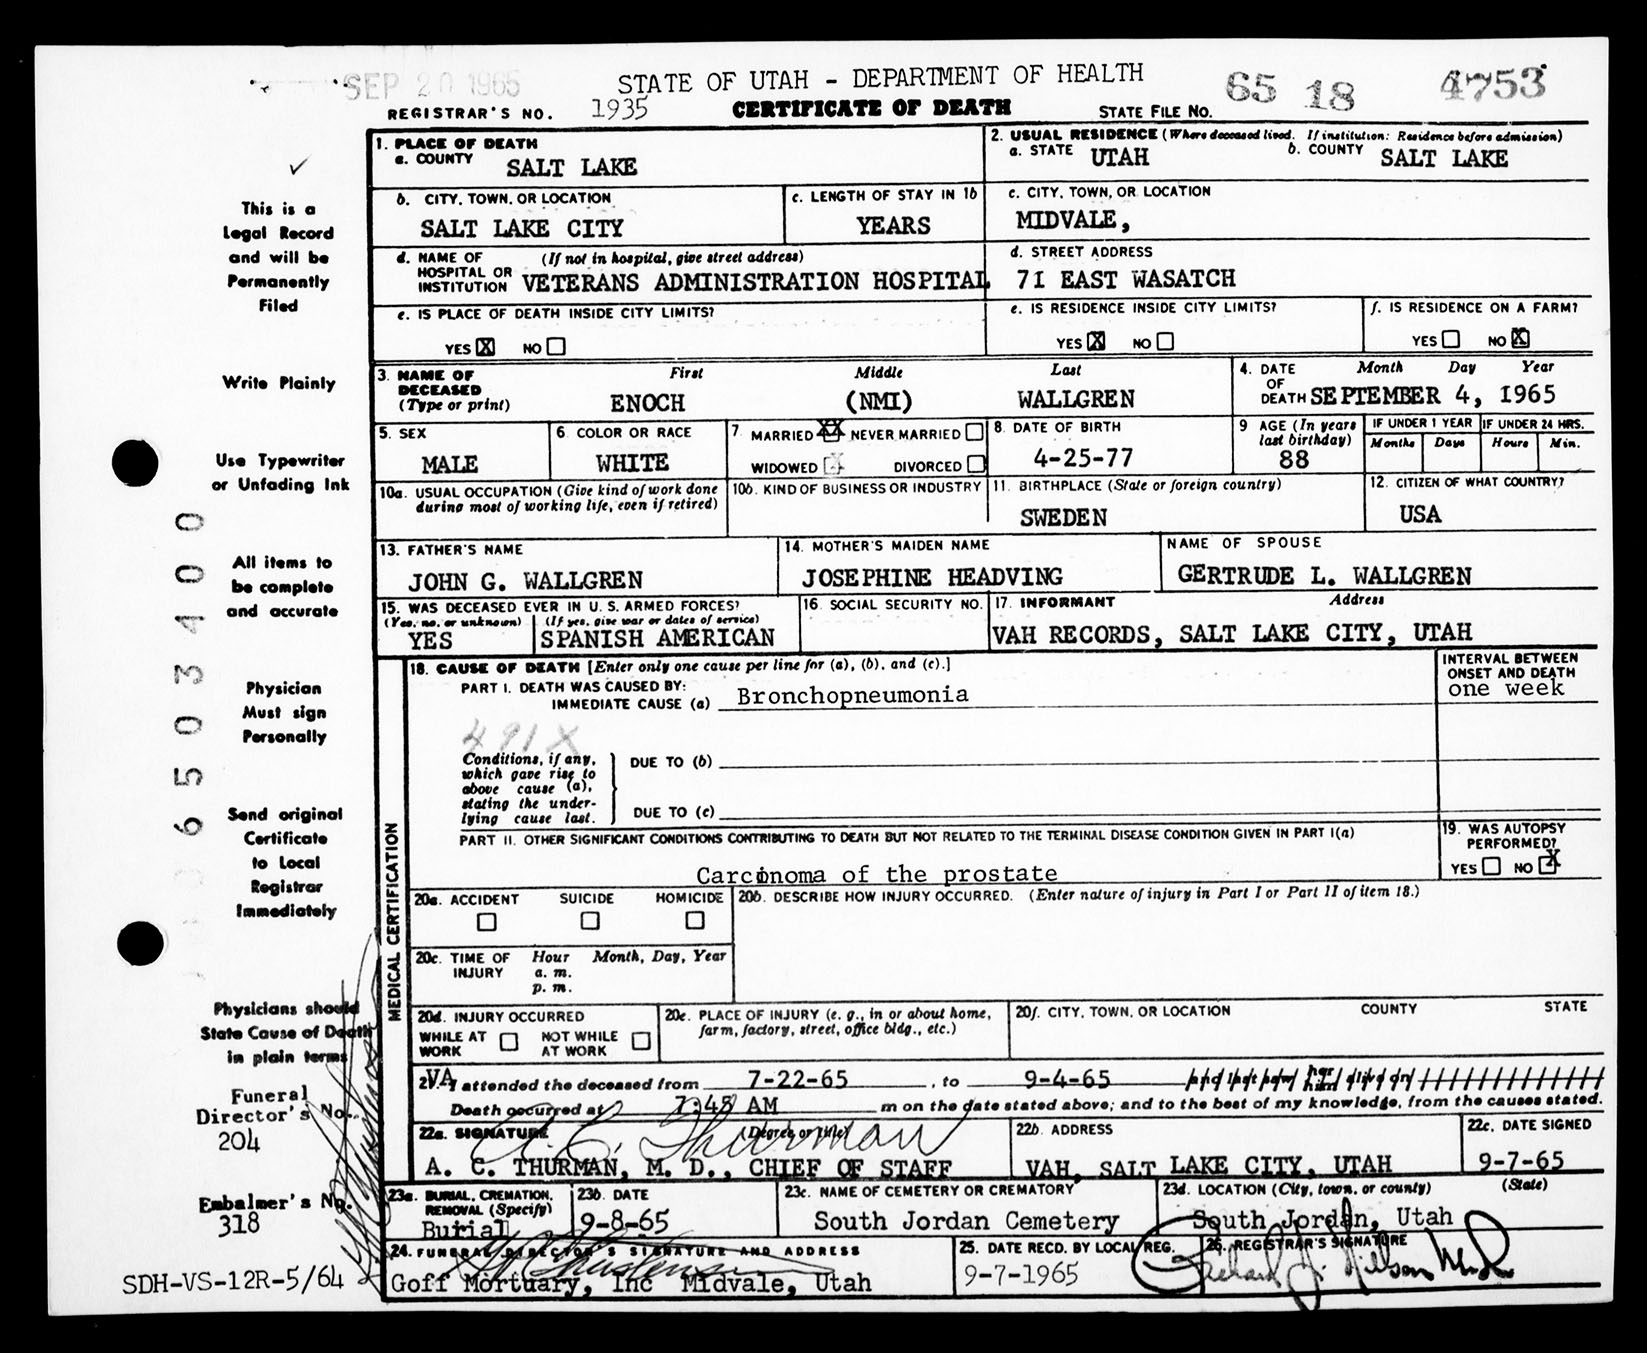 SEP 20 1965
STATE OF UTAH - DEPARTMENT OF HEALTH
65 18 4753
REGISTRAR'S NO. 1935 CERTIFICATE OF DEATH STATE FILE NO.
This is a
Legal Record
and will be
Permanently
Filed
Write Plainly
Use Typewriter
or Unfading Ink
All items to
be complete
and accurate
Physician
Must sign
Personally
Send original
Certificate
to Local
Registrar
Immediately
Physicians should
State Cause of Death
in plain terms
Funeral
Director's No.
204
Embalmer's No.
318
SDH-VS-12R-5/64
6503400
1. PLACE OF DEATH
a. COUNTY SALT LAKE
2. USUAL RESIDENCE (Where deceased lived. If institution: Residence before admission)
a. STATE UTAH b. COUNTY SALT LAKE
b. CITY, TOWN, OR LOCATION
SALT LAKE CITY
c. LENGTH OF STAY IN 1b
YEARS
c. CITY, TOWN, OR LOCATION
MIDVALE,
d. NAME OF HOSPITAL OR INSTITUTION (If not in hospital, give street address)
VETERANS ADMINISTRATION HOSPITAL
d. STREET ADDRESS
71 EAST WASATCH
e. IS PLACE OF DEATH INSIDE CITY LIMITS?
YES X NO
e. IS RESIDENCE INSIDE CITY LIMITS?
YES X NO
f. IS RESIDENCE ON A FARM?
YES NO X
3. NAME OF DECEASED (Type or print)
First Middle Last
ENOCH (NMI) WALLGREN
4. DATE OF DEATH Month Day Year
SEPTEMBER 4, 1965
5. SEX
MALE
6. COLOR OR RACE
WHITE
7. MARRIED NEVER MARRIED
WIDOWED DIVORCED
8. DATE OF BIRTH
4-25-77
9 AGE (In years last birthday)
88
IF UNDER 1 YEAR IF UNDER 24 HRS.
Months Days Hours Min.
10a. USUAL OCCUPATION (Give kind of work done during most of working life, even if retired)
10b. KIND OF BUSINESS OR INDUSTRY
11. BIRTHPLACE (State or foreign country)
SWEDEN
12. CITIZEN OF WHAT COUNTRY?
USA
13. FATHER'S NAME
JOHN G. WALLGREN
14. MOTHER'S MAIDEN NAME
JOSEPHINE HEADVING
NAME OF SPOUSE
GERTRUDE L. WALLGREN
15. WAS DECEASED EVER IN U. S. ARMED FORCES?
(Yes, no, or unknown) (If yes, give war or dates of service)
YES SPANISH AMERICAN
16. SOCIAL SECURITY NO.
17. INFORMANT Address
VAH RECORDS, SALT LAKE CITY, UTAH
MEDICAL CERTIFICATION
18. CAUSE OF DEATH [Enter only one cause per line for (a), (b), and (c).]
PART I. DEATH WAS CAUSED BY:
IMMEDIATE CAUSE (a) Bronchopneumonia
INTERVAL BETWEEN
ONSET AND DEATH
one week
491X
Conditions, if any,
which gave rise to
above cause (a),
stating the under-
lying cause last.
DUE TO (b)
DUE TO (c)
PART II. OTHER SIGNIFICANT CONDITIONS CONTRIBUTING TO DEATH BUT NOT RELATED TO THE TERMINAL DISEASE CONDITION GIVEN IN PART I(a)
Carcinoma of the prostate
19. WAS AUTOPSY
PERFORMED?
YES NO X
20a. ACCIDENT SUICIDE HOMICIDE
20b. DESCRIBE HOW INJURY OCCURRED. (Enter nature of injury in Part I or Part II of item 18.)
20c. TIME OF INJURY Hour Month, Day, Year
a. m.
p. m.
20d. INJURY OCCURRED
WHILE AT WORK NOT WHILE AT WORK
20e. PLACE OF INJURY (e. g., in or about home, farm, factory, street, office bldg., etc.)
20f. CITY, TOWN, OR LOCATION COUNTY STATE
21. VA attended the deceased from 7-22-65, to 9-4-65
Death occurred at 7:45 AM m on the date stated above; and to the best of my knowledge, from the causes stated.
22a. SIGNATURE (Degree or title)
A. C. Thurman
A. C. THURMAN, M. D., CHIEF OF STAFF
22b. ADDRESS
VAH, SALT LAKE CITY, UTAH
22c. DATE SIGNED
9-7-65
23a. BURIAL, CREMATION, REMOVAL (Specify)
Burial
23b. DATE
9-8-65
23c. NAME OF CEMETERY OR CREMATORY
South Jordan Cemetery
23d. LOCATION (City, town, or county) (State)
South Jordan, Utah
24. FUNERAL DIRECTOR'S SIGNATURE AND ADDRESS
Goff Mortuary, Inc Midvale, Utah
25. DATE RECD. BY LOCAL REG.
9-7-1965
26. REGISTRAR'S SIGNATURE